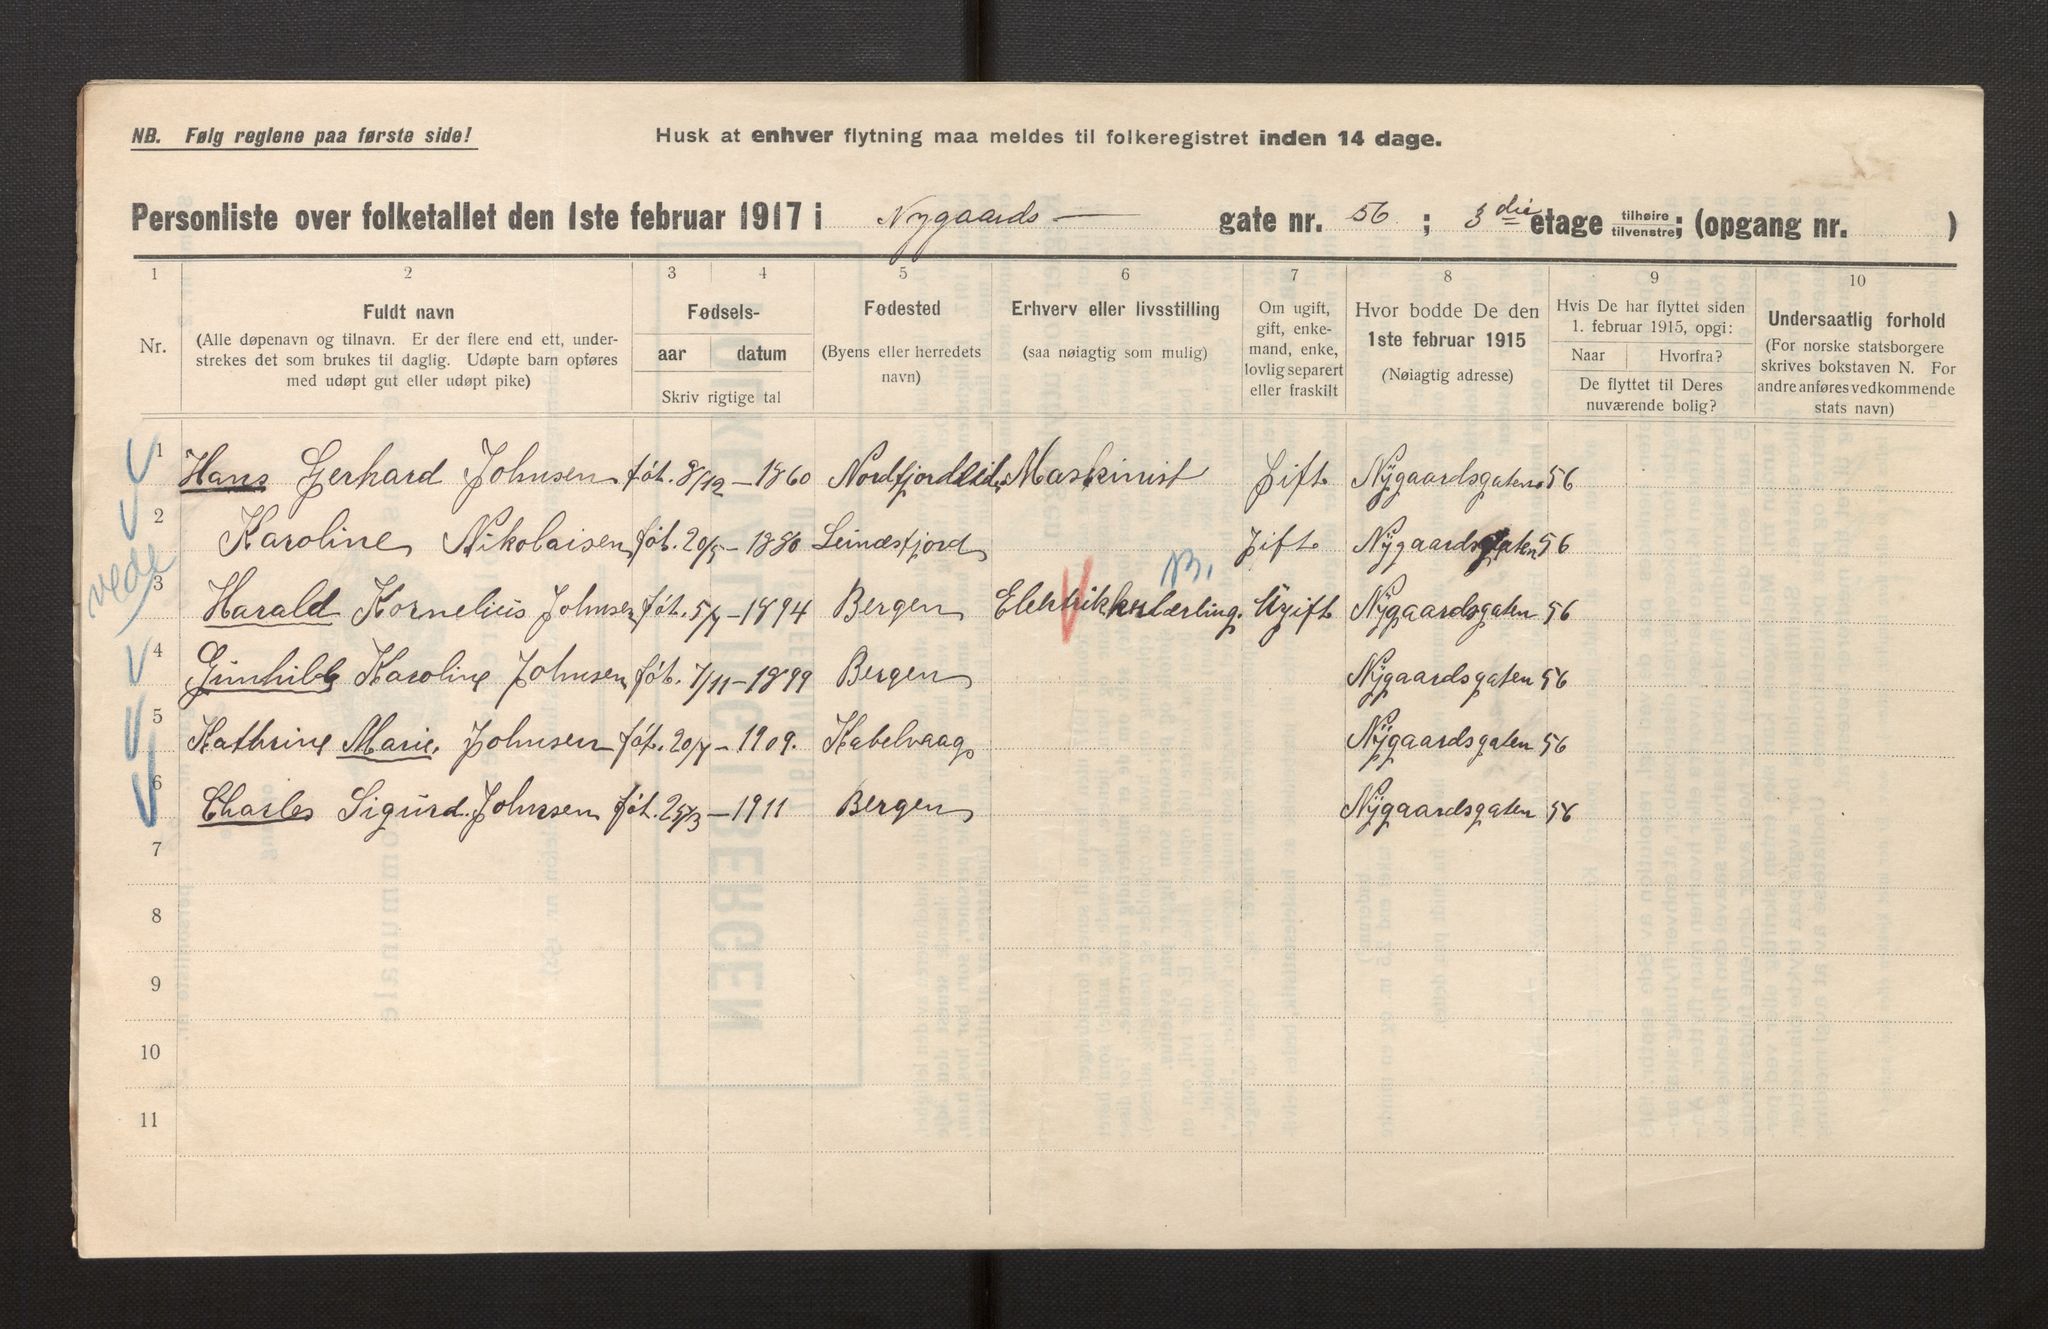 NB. Følg reglene paa første side!
Husk at enhver flytning maa meldes til folkeregistret inden 14 dage.
Personliste over folketallet den 1ste februar 1917 i Nygaards— gate nr. 56 ; 3die etage tilhøire tilvenstre; (opgang nr. )
1 2 3 4 5 6 7 8 9 10
Nr.
Fuldt navn
(Alle døpenavn og tilnavn. Er der flere end ett, under-
strekes det som brukes til daglig. Udøpte barn opføres
med udøpt gut eller udøpt pike)
Fødsels-
aar datum
Skriv rigtige tal
Fødested
(Byens eller herredets
navn)
Erhverv eller livsstilling
(saa nøiagtig som mulig)
Om ugift,
gift, enke-
mand, enke,
lovlig separert
eller fraskilt
Hvor bodde De den
1ste februar 1915
(Nøiagtig adresse)
Hvis De har flyttet siden
1. februar 1915, opgi:
Naar Hvorfra?
De flyttet til Deres
nuværende bolig?
Undersaatlig forhold
(For norske statsborgere
skrives bokstaven N. For
andre anføres vedkommende
stats navn)
1 Hans Gerhard Johnsen føt. 8/12 — 1860 Nordfjordeid Maskinist Gift Nygaardsgaten 56
2 Karoline Nikolaisen føt. 20/5 — 1880 Gift Nygaardsgaten 56
vede
N.
3 Harald Kornelius Johnsen føt. 5/7 — 1894 Bergen Ugift Nygaardsgaten 56
4 Gunhild Karoline Johnsen føt. 7/11 — 1899 Bergen Nygaardsgaten 56
5 Kathrine Marie Johnsen føt. 20/7 — 1909. Kabelvaag Nygaardsgaten 56
6 Charles Sigurd Johnsen føt. 25/3 — 1911 Bergen Nygaardsgaten 56
7
8
9
10
11